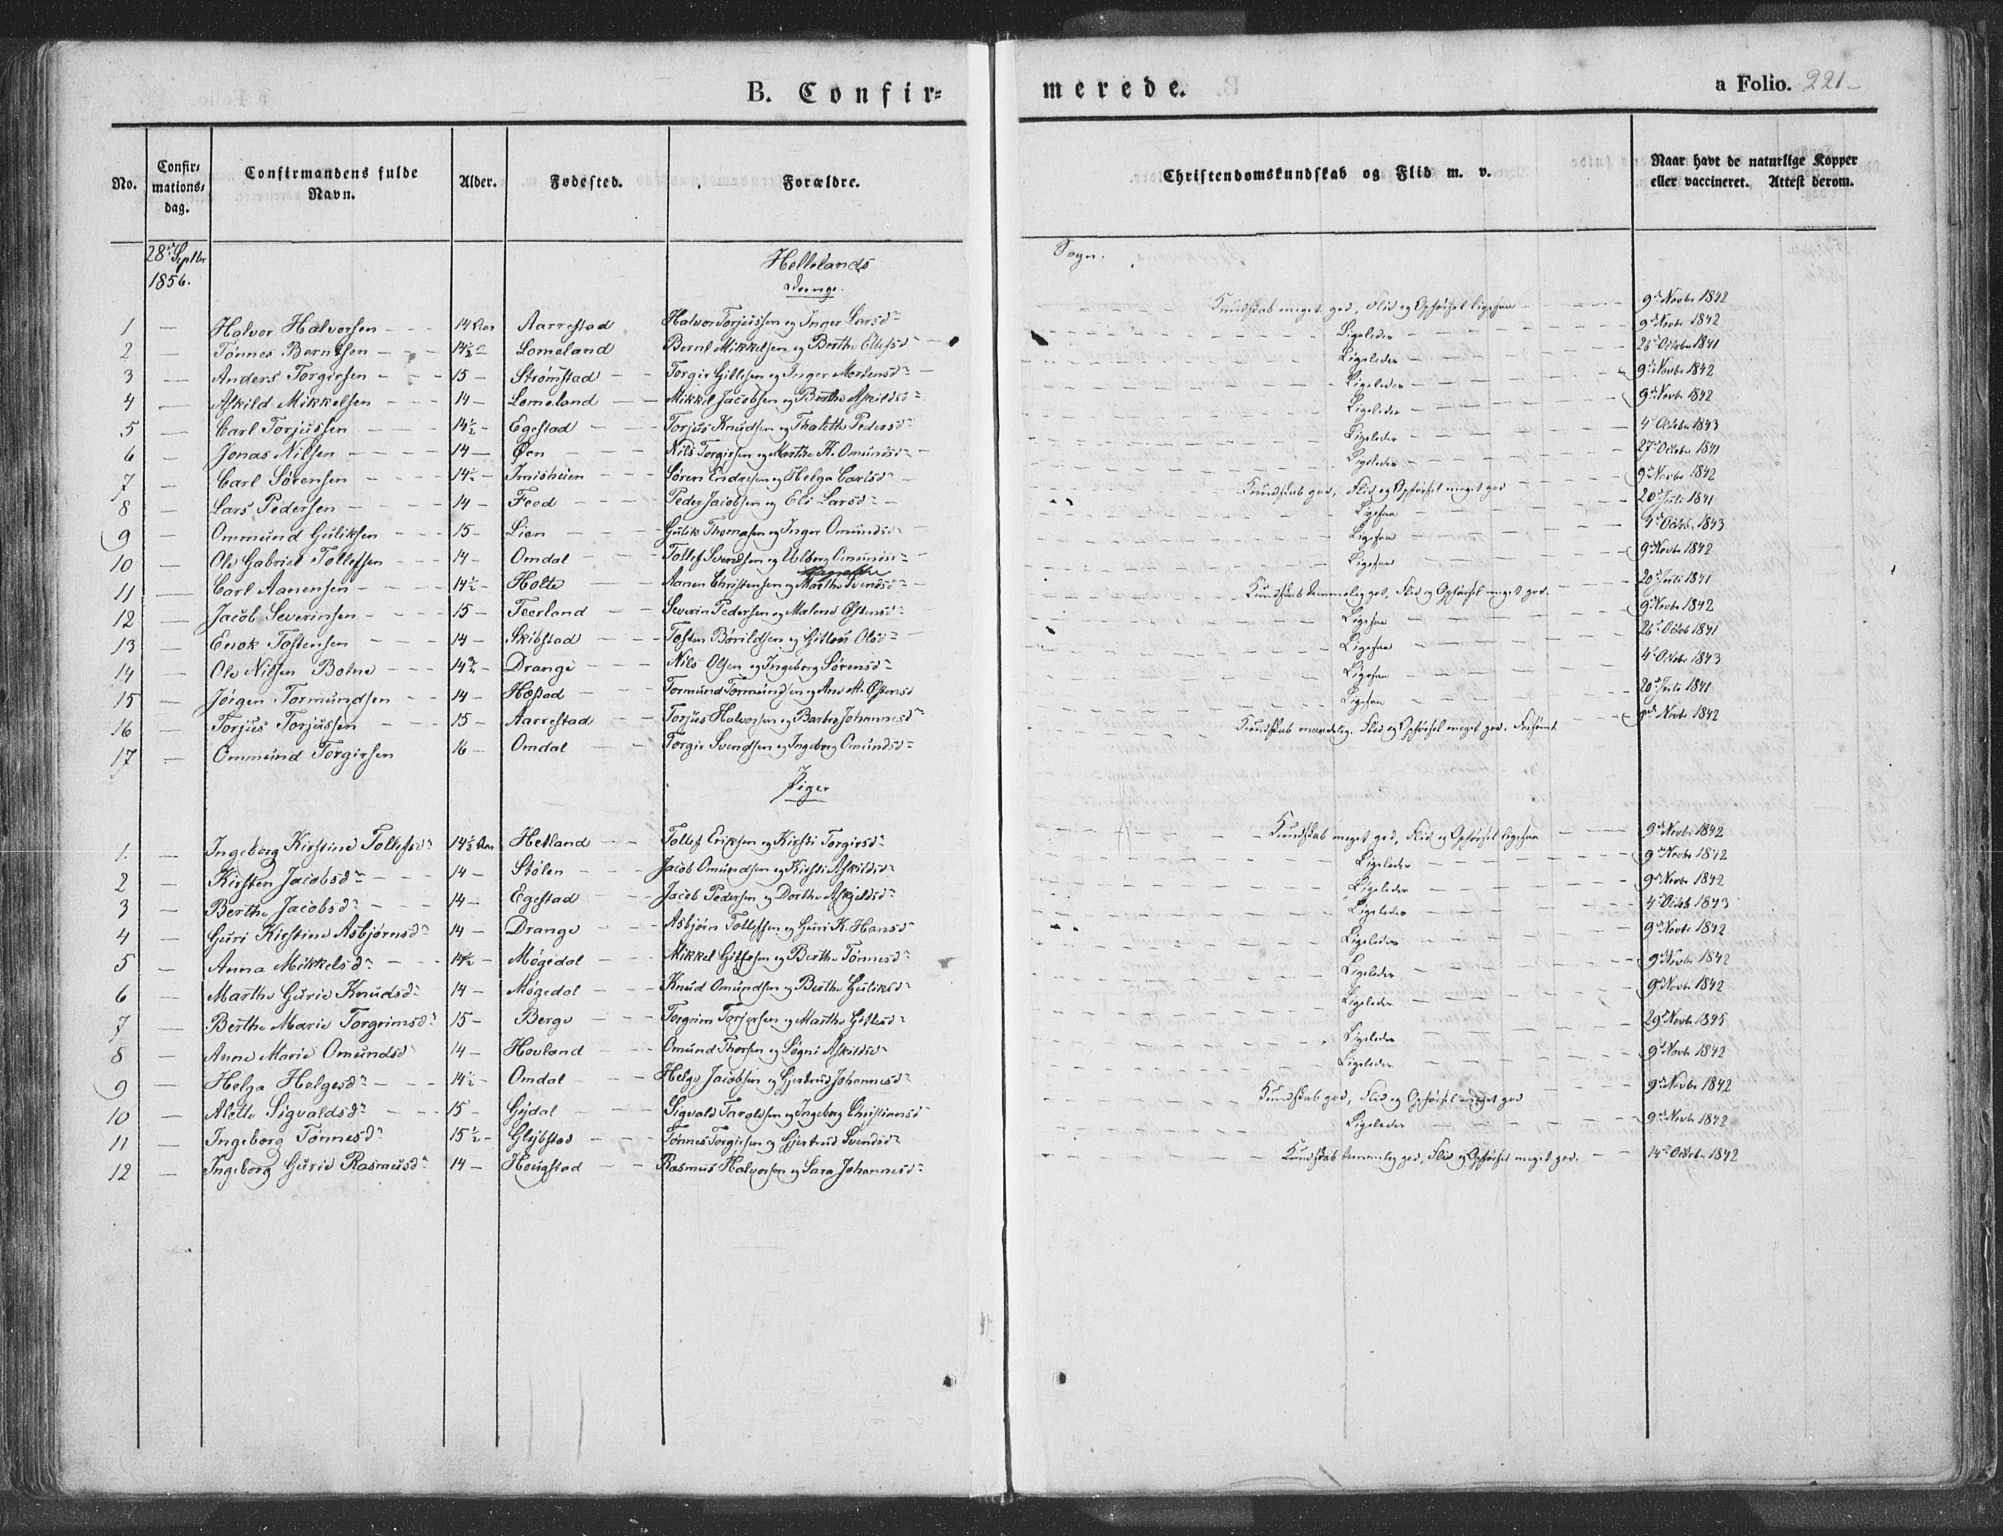 B. Confir= merede. a Folio. 221-
No. Confir=mations=dag. Confirmandens fulde Navn. Alder. Fødested. Forældre. Christendomskundskab og Flid m. v. Naar havt de naturlige Kopper eller vaccineret. Attest derom.
28de Septbr 1856. Hellelands Sogn.
Drenge.
1 — Halvor Halvorsen 14 Aar Aarrestad Halvor Torjussen og Inger Larsd Kundskab meget god, Flid og Opførsel ligesaa 9de Novbr 1842
2 — Tønnes Berntsen 14½ Lomeland Bernt Mikkelsen og Berthe Ellefsd Ligeledes 9de Novbr 1842
3 — Anders Torgirsen 15 Strømstad Torgir Gitlesen og Inger Mortensd Ligeledes 26 Octobr 1841
4 — Askild Mikkelsen 14 Lomeland Mikkel Jacobsen og Berthe Askildsd Ligeledes 9de Novbr 1842
5 — Carl Torjussen 14½ Egestad Torjus Knudsen og Thalette Pedersd Ligeledes 9de Novbr 1842
6 — Jonas Nilsen 14 Øen Nils Torgirsen og Marthe K. Omundsd Ligeledes 4 Octobr 1843
7 — Carl Sørensen 14½ Søren Endresen og Helga Carlsd Ligeledes 27 Octobr 1841
8 — Lars Pedersen 14 Feed Peder Jacobsen og Eli Larsd Kundskab god, Flid og Opførsel meget god 9de Novbr 1842
9 — Ommund Guliksen 15 Lien Gulik Thomasen og Inger Omundsd Ligesaa 20 Juli 1841
10 — Ole Gabriel Tollefsen 14 Omdal Tollef Svendsen og Aslborg Omundsd Ligesaa 4 Octobr 1843
11 — Carl Aanensen 14½ Holte Aanen Christensen og Marthe Svendsd Ligesaa 9de Novbr 1842
12 — Jacob Severinsen 15 Teerland Severin Pedersen og Malene Østensd Kundskab temmelig god, Flid og Opførsel meget god. 20 Juli 1841
13 — Enok Tostensen 14 Skibstad Tosten Børildsen og Gitlou Olsd Ligesaa 9de Novbr 1842
14 — Ole Nilsen Bolme 14¾ Drange Nils Olsen og Ingeborg Sørensd Ligesaa 26 Octob 1841
15 — Jørgen Tormundsen 14 Høstad Tormund Tormundsen og Ane M. Østensd Ligesaa 4 Octobr 1843
16 — Torjus Torjussen 15 Aarrestad Torjus Halvorsen og Barbro Johannesd Ligesaa 20 Juli 1841
17 — Ommund Torgirsen 16 Omdal Torgir Svendsen og Ingeborg Omundsd Kundskab maadelig, Flid og Opførsel meget god. 9de Novbr 1842
Piger
1. — Ingeborg Kirstine Tollefsd 14½ Aar Hetland Tollef Eriksen og Kirsti Torgirsd Kundskab meget god, Flid og Opførsel ligesaa 9de Novbr 1842
2 — Kirsten Jacobsd 14 Stølen Jacob Omundsen og Kirsti Askildsd Ligeledes 9de Novbr 1842
3 — Berthe Jacobsd 14 Egestad Jacob Pedersen og Dorthe Askjeldsd Ligeledes 9de Novbr 1842
4 — Guri Kirstine Asbjørnsd 14 Drange Asbjørn Tollefsen og Guri K. Hansd Ligeledes 4 Octob 1843
5 — Anna Mikkelsd 14½ Møgedal Mikkel Gitlesen og Berthe Tønnesd Ligeledes 9de Novbr 1842
6 — Marthe Gurie Knudsd 14 Møgedal Knud Omundsen og Berthe Guliksd Ligeledes 9de Novbr 1842
7 — Berthe Marie Torgrimsd 15 Berge Torgrim Torjersen og Marthe Gitlesd Ligeledes 9de Novbr 1842
8 — Anne Marie Omundsd 14 Hovland Omund Thorsen og Søgni Askildsd Ligeledes 29 Novbr 1845
9 — Helga Helgesd 14½ Omdal Helge Jacobsen og Gjertrud Johannesd Ligeledes 9de Novbr 1842
10 — Alette Sigvaldsd 15 Gydal Sigvald Taraldsen og Ingeborg Christiansd Kundskab god, Flid og Opførsel meget god 9de Novbr 1842
11 — Ingeborg Tønnesd 15½ Glybstad Tønnes Torgirsen og Gjertrud Svendsd Ligeledes 9de Novbr 1842
12 — Ingeborg Gurie Rasmusd 14 Hougstad Rasmus Halvorsen og Sara Johannesd Kundskab temmelig god, Flid og Opførsel meget god. 14de Octobr 1842